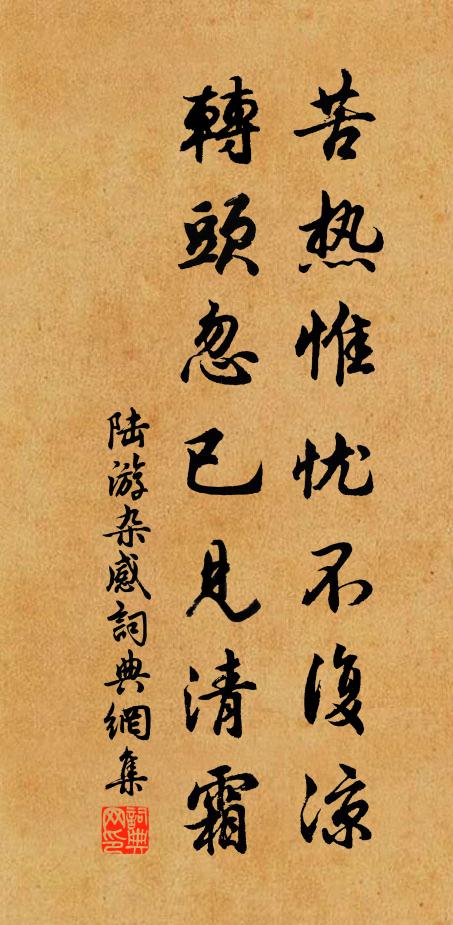 苦热惟忧不復凉
轉頭忽已見清霜
陆游杂感詞典網集
詞典网印